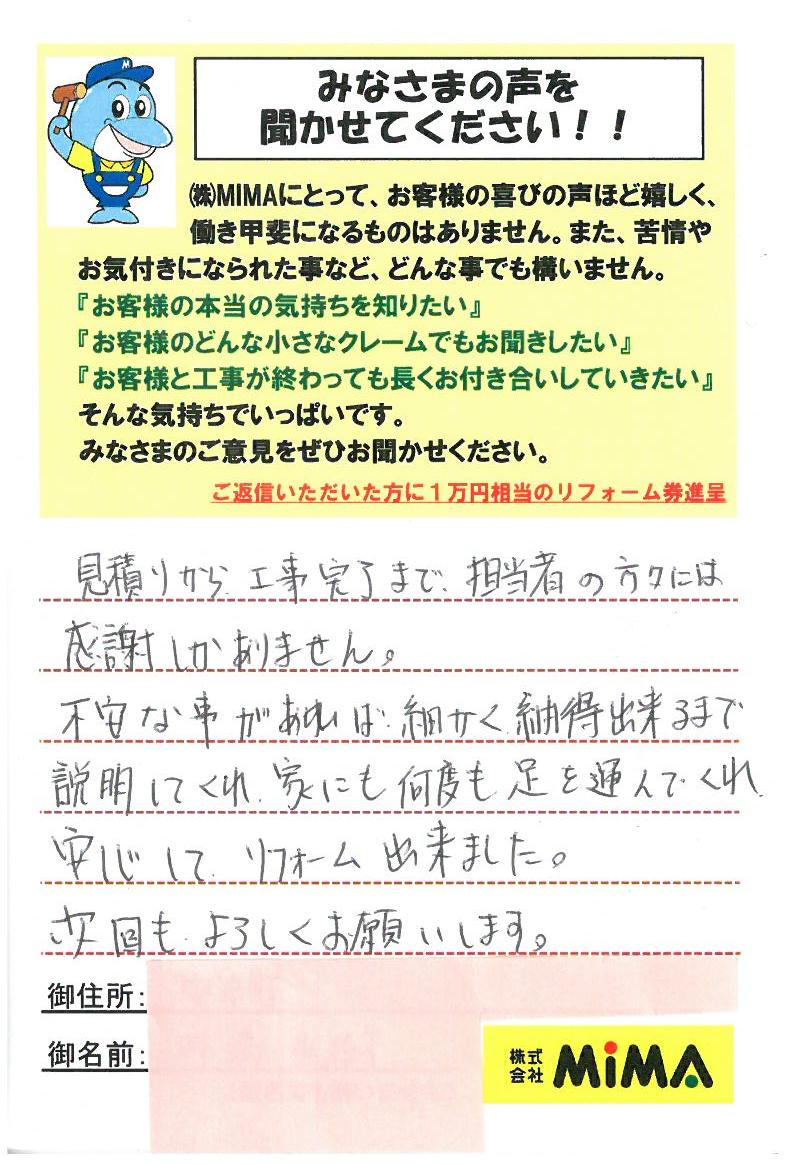 みなさまの声を
聞かせてください！！
㈱MIMAにとって、お客様の喜びの声ほど嬉しく、
働き甲斐になるものはありません。また、苦情や
お気付きになられた事など、どんな事でも構いません。
『お客様の本当の気持ちを知りたい』
『お客様のどんな小さなクレームでもお聞きしたい』
『お客様と工事が終わっても長くお付き合いしていきたい』
そんな気持ちでいっぱいです。
みなさまのご意見をぜひお聞かせください。
ご返信いただいた方に１万円相当のリフォーム券進呈
見積りから、工事完了まで、担当者の方々には
感謝しかありません。
不安な事があれば、細かく、納得出来るまで
説明してくれ、家にも何度も足を運んでくれ、
安心して、リフォーム出来ました。
次回も、よろしくお願いします。
御住所：
御名前：
株式会社 MiMA